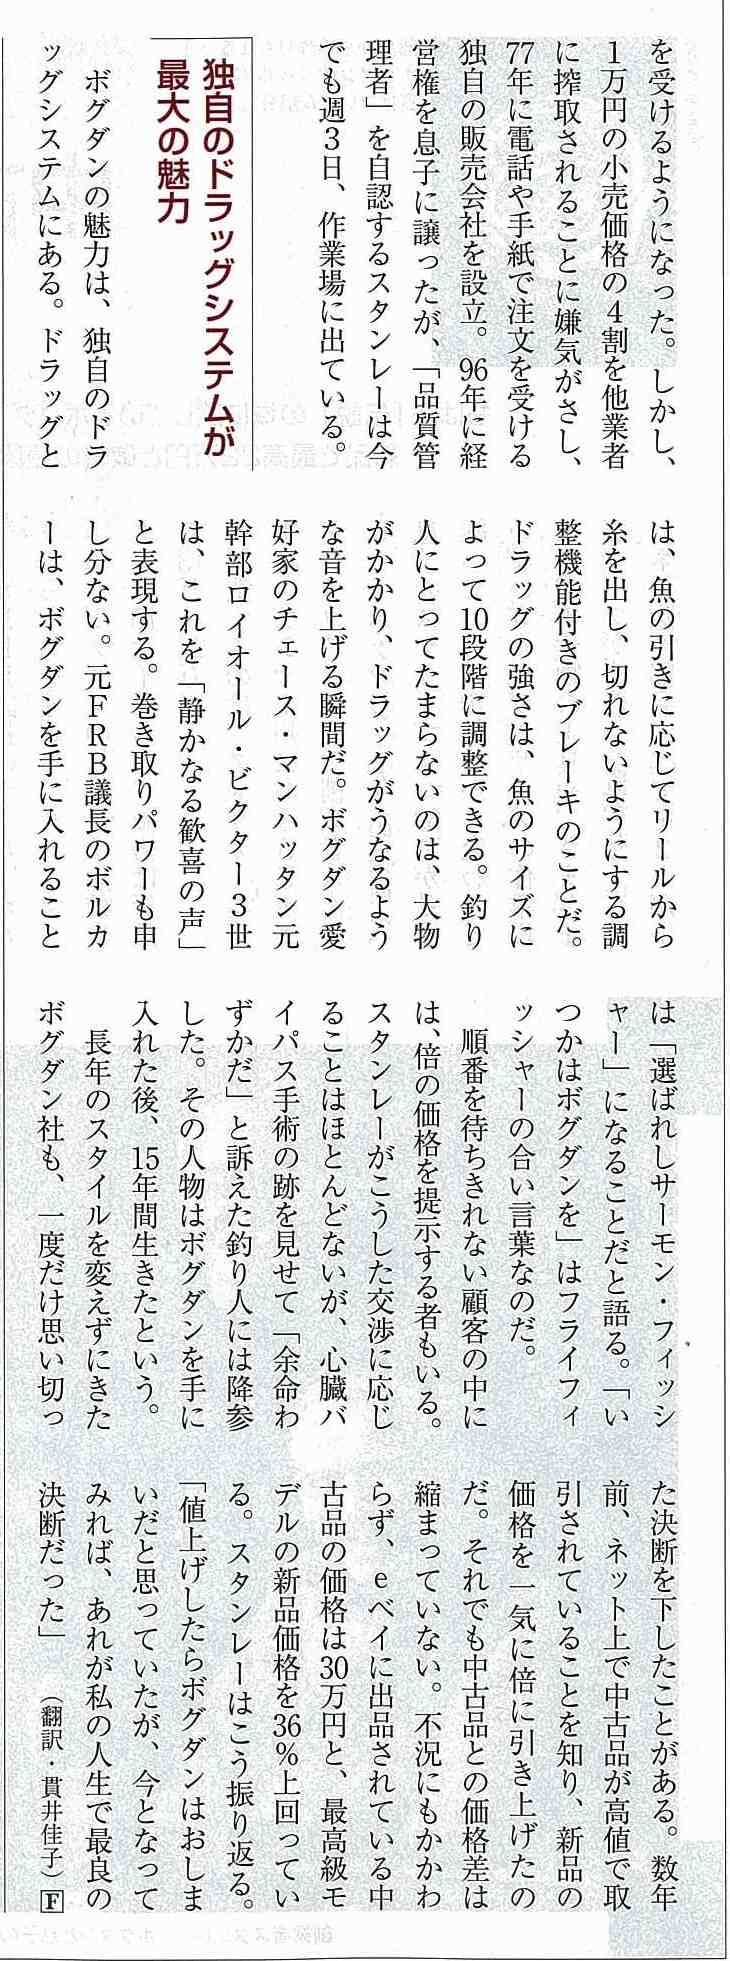 を受けるようになった。しかし、
1万円の小売価格の4割を他業者
に搾取されることに嫌気がさし、
77年に電話や手紙で注文を受ける
独自の販売会社を設立。96年に経
営権を息子に譲ったが、「品質管
理者」を自認するスタンレーは今
でも週3日、作業場に出ている。
独自のドラッグシステムが
最大の魅力
ボグダンの魅力は、独自のドラ
ッグシステムにある。ドラッグと
は、魚の引きに応じてリールから
糸を出し、切れないようにする調
整機能付きのブレーキのことだ。
ドラッグの強さは、魚のサイズに
よって10段階に調整できる。釣り
人にとってたまらないのは、大物
がかかり、ドラッグがうなるよう
な音を上げる瞬間だ。ボグダン愛
好家のチェース・マンハッタン元
幹部ロイオール・ビクター3世
は、これを「静かなる歓喜の声」
と表現する。巻き取りパワーも申
し分ない。元FRB議長のボルカ
ーは、ボグダンを手に入れること
は「選ばれしサーモン・フィッシ
ャー」になることだと語る。「い
つかはボグダンを」はフライフィ
ッシャーの合い言葉なのだ。
順番を待ちきれない顧客の中に
は、倍の価格を提示する者もいる。
スタンレーがこうした交渉に応じ
ることはほとんどないが、心臓バ
イパス手術の跡を見せて「余命わ
ずかだ」と訴えた釣り人には降参
した。その人物はボグダンを手に
入れた後、15年間生きたという。
長年のスタイルを変えずにきた
ボグダン社も、一度だけ思い切っ
た決断を下したことがある。数年
前、ネット上で中古品が高値で取
引されていることを知り、新品の
価格を一気に倍に引き上げたの
だ。それでも中古品との価格差は
縮まっていない。不況にもかかわ
らず、eベイに出品されている中
古品の価格は30万円と、最高級モ
デルの新品価格を36%上回ってい
る。スタンレーはこう振り返る。
「値上げしたらボグダンはおしま
いだと思っていたが、今となって
みれば、あれが私の人生で最良の
決断だった」 （翻訳・貫井佳子）F